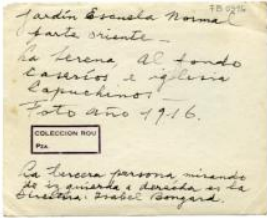 FB 0296
Jardín Escuela Normal
parte oriente —
La Serena, Al fondo
Caseríos e iglesia
Capuchinos —
Foto año 1916.
COLECCION ROU
Pza.
La tercera persona mirando
de izquierda a derecha es la
Directora: Isabel Bongard.